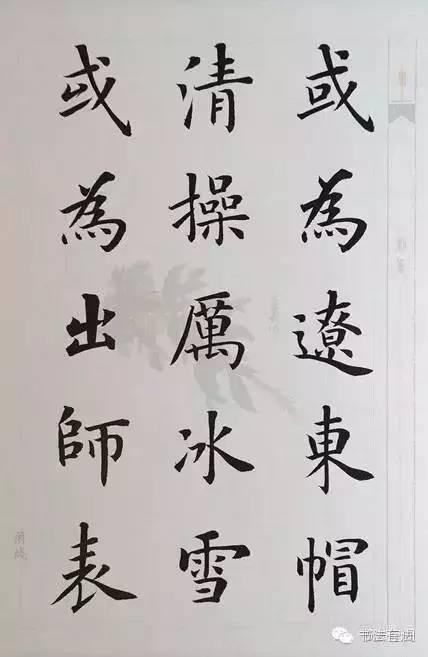 或為遼東帽
清操厲冰雪
或為出師表
书法有调